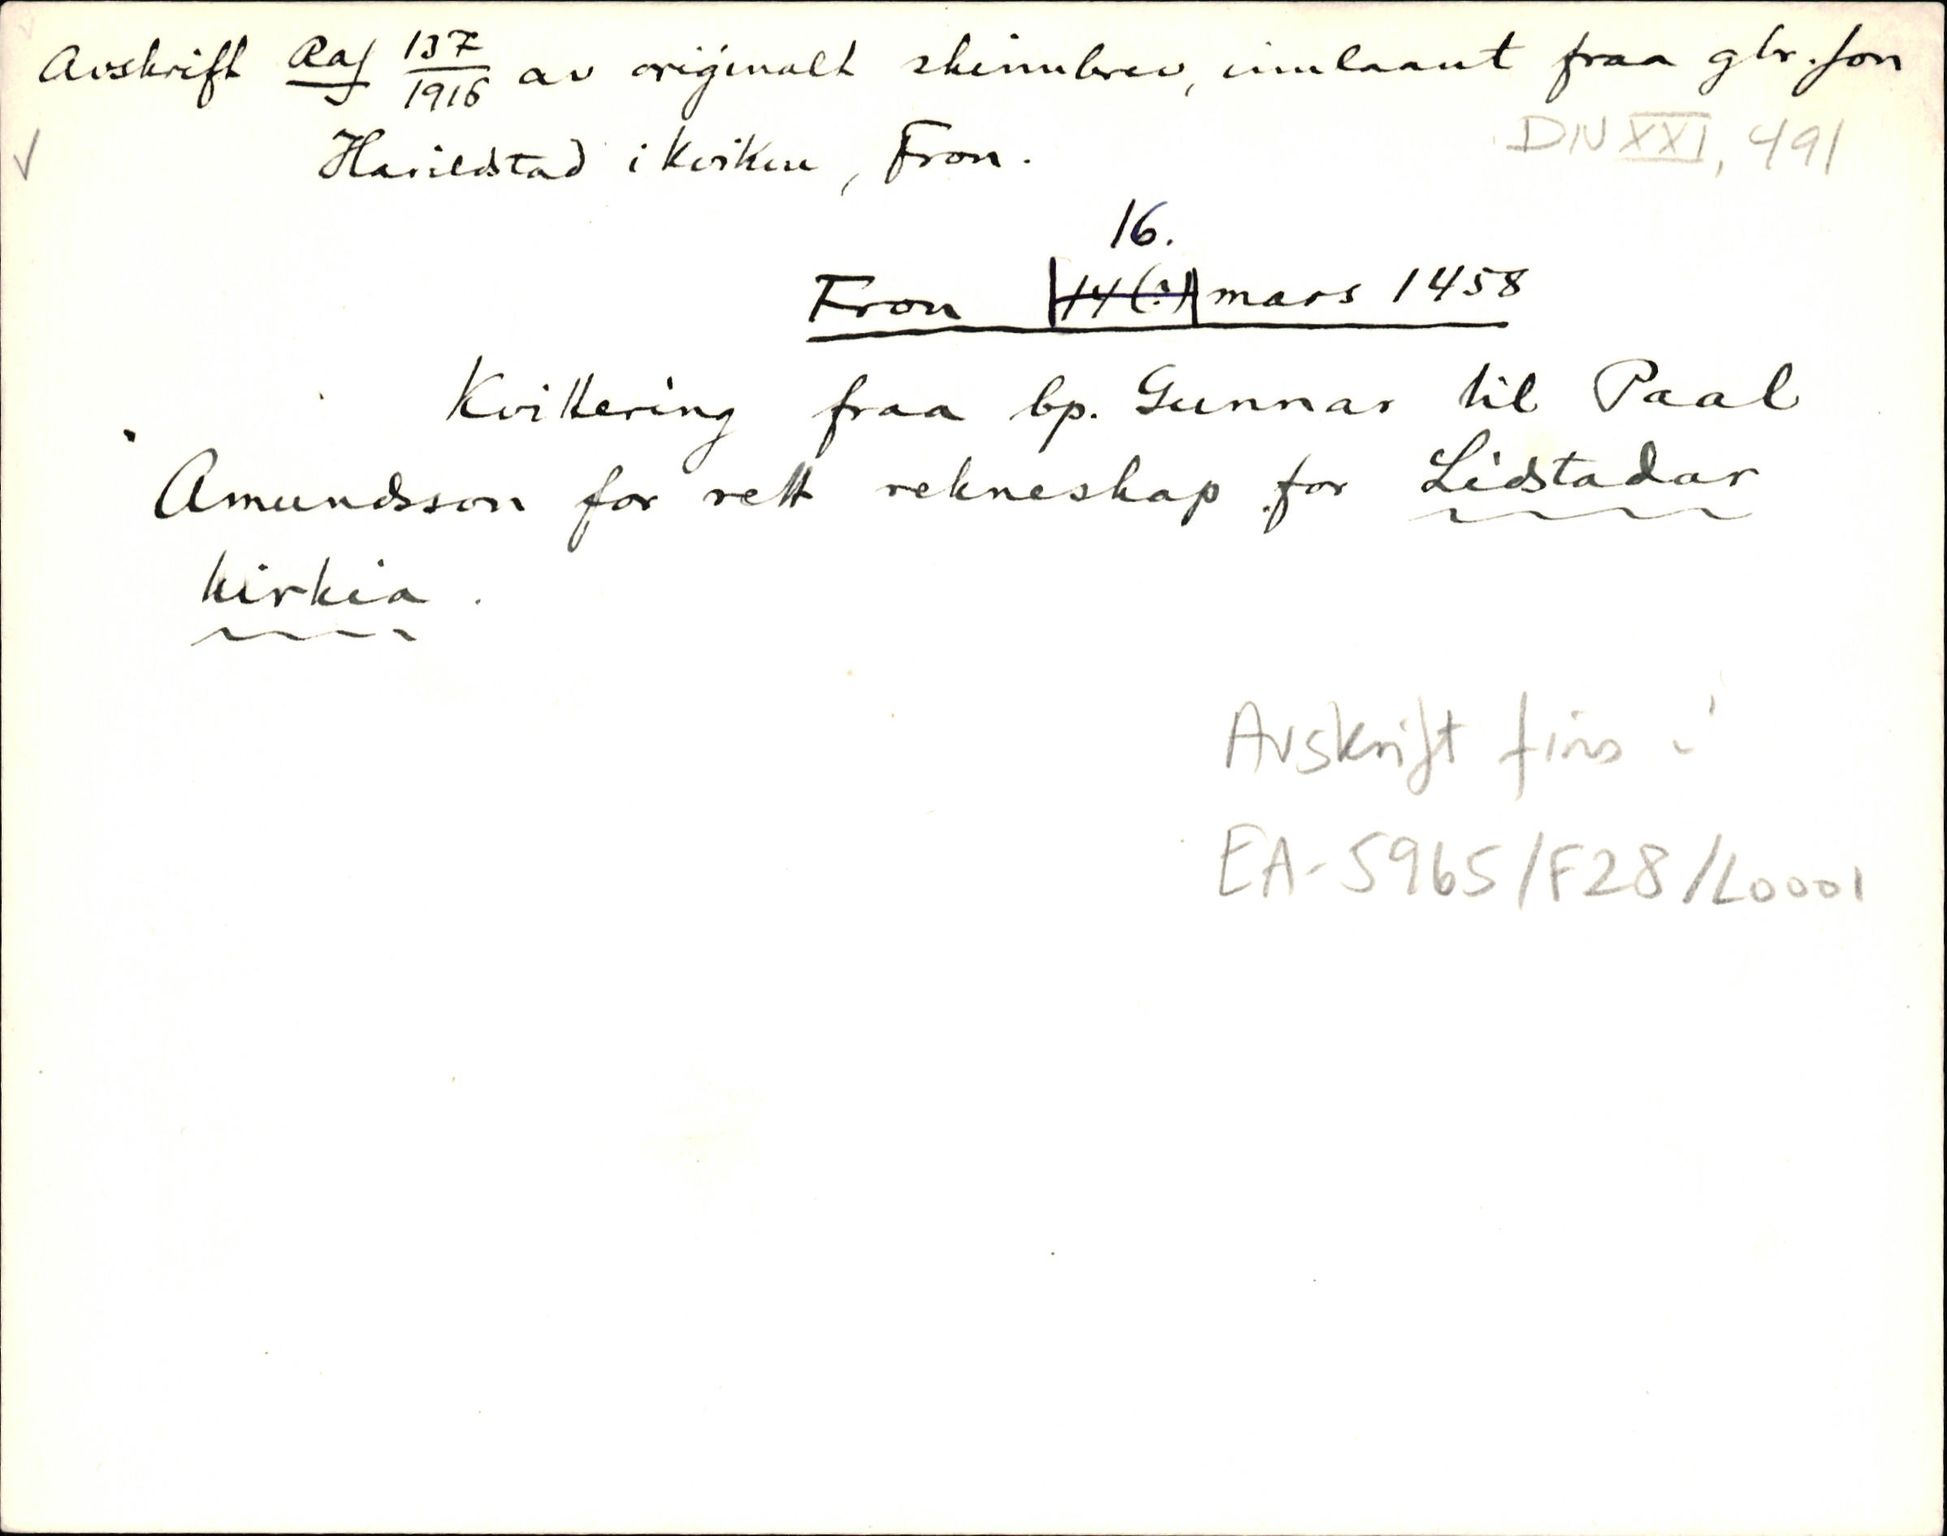 Avskrift Raf 137/1916 av originalt skinnbrev, innlaant fraa gbr. Jon
Harildstad i Kvikne, Fron.
DN XXI, 491
16.
Fron 14(?) mars 1458
Kvittering fraa bp. Gunnar til Paal
Amundsson for rett rekneskap for Lidstadar
kirkia.
Avskrift fins i
EA-5965/F28/L0001